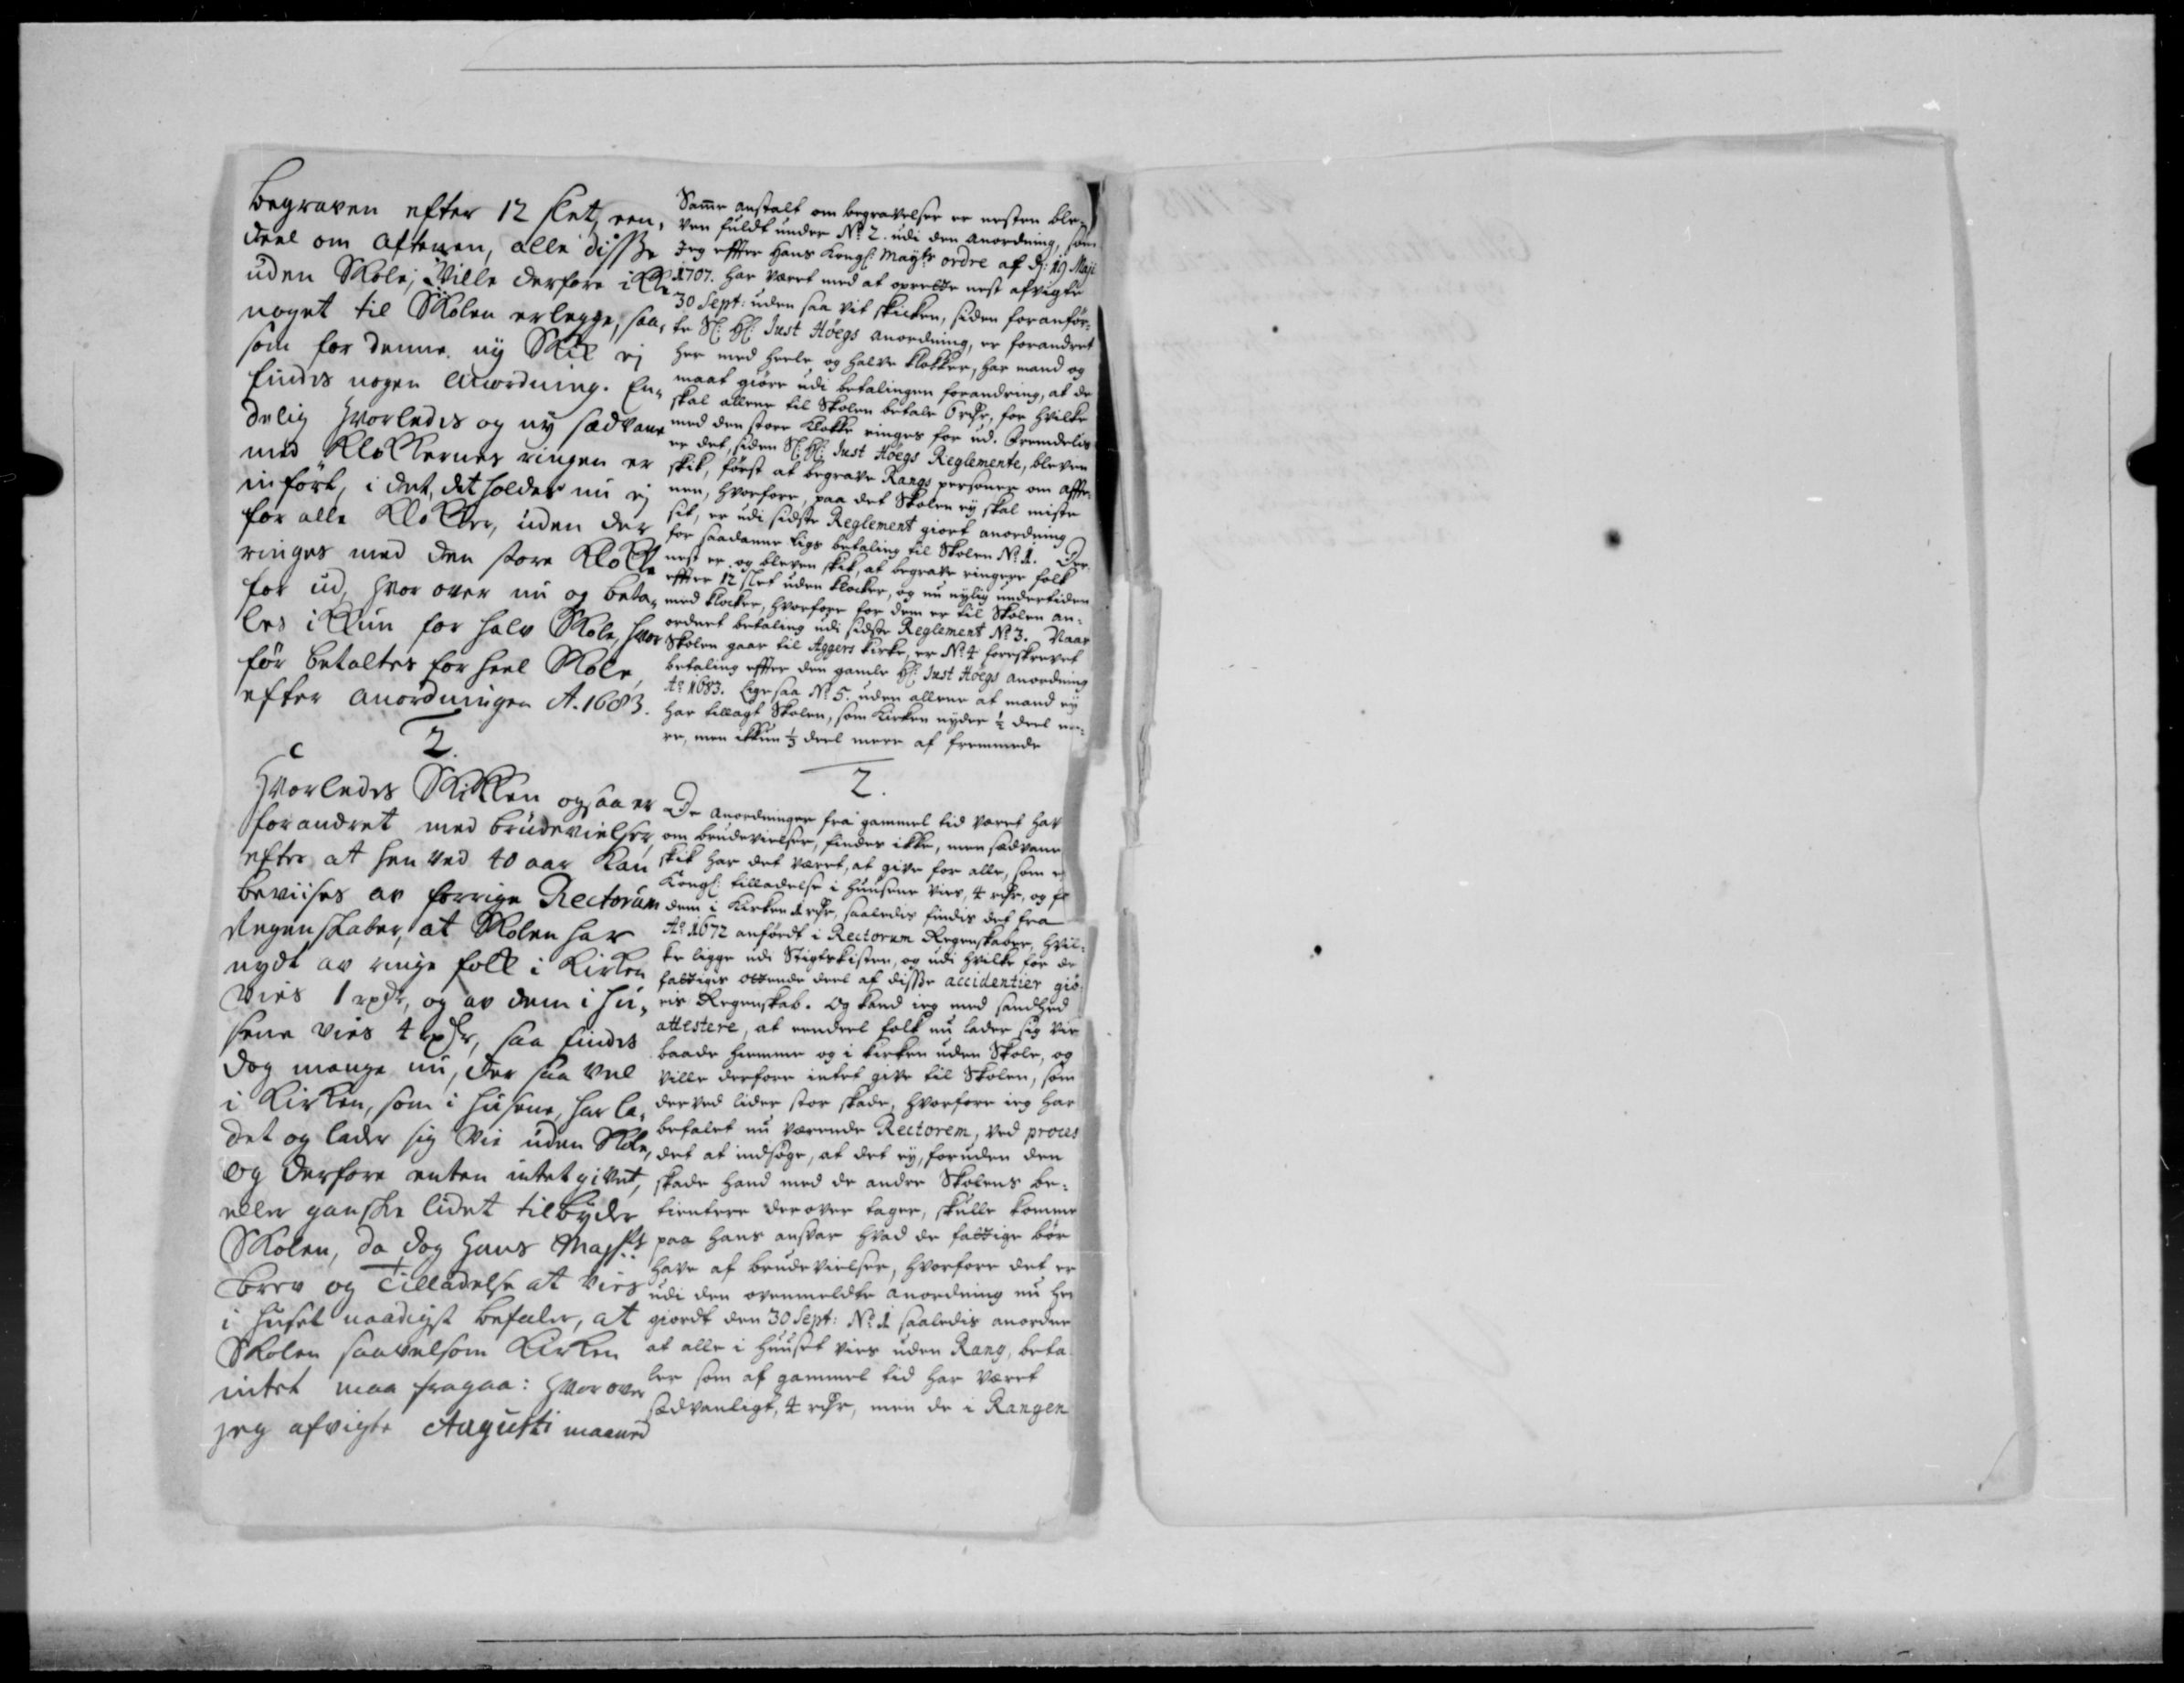 begraven efter 12 slet, een,
deel om aftenen, alle disse
uden Skole; Ville derfore ikke
noget til Skolen erlegge, saa,
som for denne ny Skik ej
findes nogen anordning. En,
delig hvorledes og ny sædvane
med Klokkernes ringen er
inført, i det, det holdes nu ej
for alle Klokker, uden der
ringes med den store Klokke
for ud, hvor over nu og beta,
les ikkun for halv Skole, hvor
før betaltes for heel Skole,
efter anordningen A. 1683.
2.
Hvorledes Skikken ogsaa er
forandret med brudevielser,
efter at hen ved 40 aar kan
beviises av forrige Rectorum
Regenskaber, at Skolen har
nydt av ringe folk i Kirken
vies 1 rixdr, og av dem i hu,
sene vies 4 rixdr, saa findes
dog mange nu, der saa vel
i Kirken, som i husene, har la,
det og lader sig vie uden Skole,
og derfore enten intet givet,
eller ganske lidet tilbyder
Skolen, da dog Hans Majts
brev og Tilladelse at vies
i huset naadigst befaler, at
Skolen saavelsom Kirken
intet maa fragaa: hvorover
jeg afvigte Augusti maaned
Samme anstalt om begravelser er nesten ble,
ven fuldt under No 2. udi den anordning, som
Jeg effter Hans Kongl: Mayts ordre af dj: 19 Maji
1707. har været med at oprette nest afvigte
30 Sept: uden saa vit skicken, siden foranfør,
te Sl: Hl: Just Höegs anordning, er forandret
her med heele og halve klokker, har mand og
maat giøre udi betalingen forandring, at de
skal allene til Skolen betale 6 rdr, for hvilke
med den store Klokke ringes for ud. Fremdelis
er det, siden Sl: Hl: Just Höegs Reglemente, bleven
skik, først at begrave Rangs personer om affte,
nen, hvorfore, paa det Skolen ey skal miste
sit, er udi sidste Reglement giort anordning
for saadanne ligs betaling til Skolen No 1. Der,
nest er og bleven skik, at begrave ringere folk
effter 12 slet uden klocker, og nu nylig undertiden
med klocker, hvorfore for dem er til Skolen an,
ordnet betaling udi sidste Reglement No 3. Naar
Skolen gaar til Aggers kirke, er No 4 foreskrevet
betaling effter den gamle Hl: Just Höegs anordning
Ao 1683. Ligesaa No 5. uden allene at mand ey
har tillagt Skolen, som Kirken nyder ½ deel me,
re, men ikkun ⅓ deel mere af fremmede
2.
De anordninger fra gammel tid været hav
om brudevielser, findes ikke, men sædvane
skik har det været, at give for alle, som
Kongl: tilladelse i huusene vies, 4 rdr, og
dem i Kirken 1 rdr, saaledis findis det fra
Ao 1672 anfördt i Rectorum Regenskaber, hvil,
ke ligge udi Stigtskisten, og udi hvilke for de
fattigis ottende deel af disse accidentier giö,
ris Regenskab. Og kand ieg med sandhed
attestere, at eendeel folk nu lader sig vie
baade hiemme og i kirken uden Skole, og
ville derfore intet give til Skolen, som
derved lider stor skade, hvorfore ieg har
befalet nu værende Rectorem, ved proces
det at indsöge, at det ey, foruden den
skade hand med de andre Skolens be,
tientere derover tager, skulle komme
paa hans ansvar hvad de fattige bör
have af brudevielser, hvorfore det er
udi den ovenmeldte anordning nu her
giordt den 30 Sept: No 1 saaledis anordne
at alle i huuset vies uden Rang, beta
ler som af gammel tid har været
sædvanligt, 4 rdr, men de i Rangen